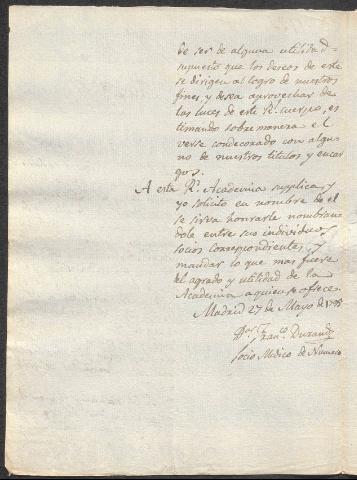 de ser de alguna utilidad=
supuesto que los deseos de este
se dirigen al logro de nuestros
fines y desea aprovechar de
las luces de este Rl. cuerpo, es
timando sobre manera el
verse condecorado con algu
no de nuestros titulos y encar
gos.
A esta Rl. Academia suplica y
yo solicito en nombre de el
se sirva honrarle nombran
dole entre sus individuos
socios correspondientes, y
mandar lo que mas fuere
del agrado y utilidad de la
Academia a quien se ofrece.
Madrid 27 de Mayo de
Dor. Franco. Durand
Socio Medico de Numero